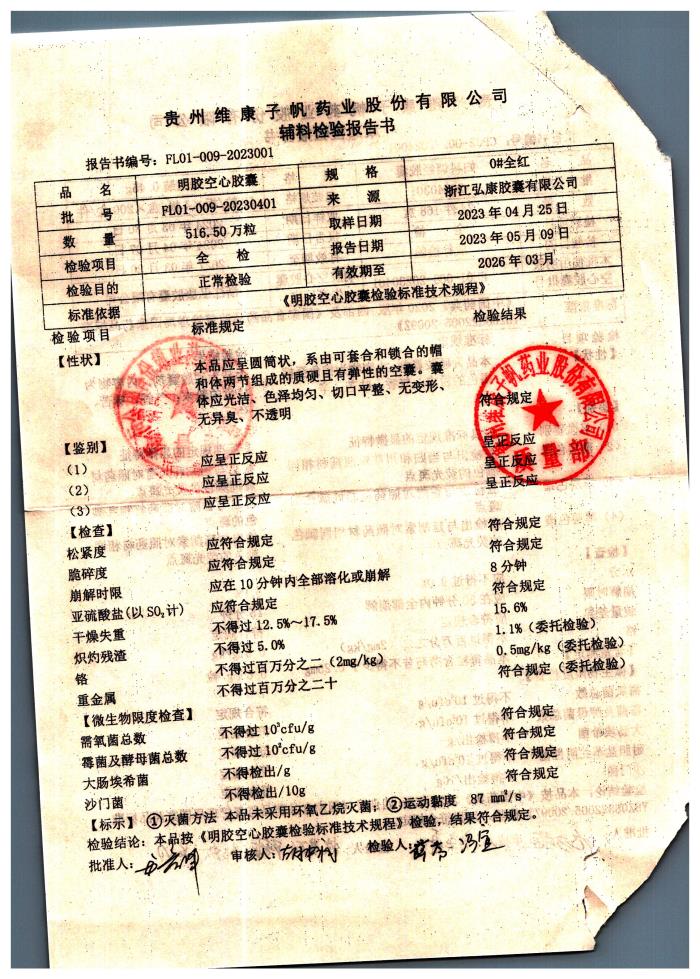 贵州维康子帆药业股份有限公司
辅料检验报告书
报告书编号：FL01-009-2023001
品 名 明胶空心胶囊 规 格 0#全红
批 号 FL01-009-20230401 来 源 浙江弘康胶囊有限公司
数 量 516.50万粒 取样日期 2023年04月25日
检验项目 全 检 报告日期 2023年05月09日
检验目的 正常检验 有效期至 2026年03月
标准依据 《明胶空心胶囊检验标准技术规程》
检验项目 标准规定 检验结果
【性状】 本品应呈圆筒状，系由可套合和锁合的帽
和体两节组成的质硬且有弹性的空囊。囊
体应光洁、色泽均匀、切口平整、无变形、 符合规定
无异臭、不透明
【鉴别】
（1） 应呈正反应 呈正反应
（2） 应呈正反应 呈正反应
（3） 应呈正反应 呈正反应
【检查】
松紧度 应符合规定 符合规定
脆碎度 应符合规定 符合规定
崩解时限 应在10分钟内全部溶化或崩解 8分钟
亚硫酸盐(以SO₂计) 应符合规定 符合规定
干燥失重 不得过12.5%～17.5% 15.6%
炽灼残渣 不得过5.0% 1.1%（委托检验）
铬 不得过百万分之二（2mg/kg） 0.5mg/kg（委托检验）
重金属 不得过百万分之二十 符合规定（委托检验）
【微生物限度检查】
需氧菌总数 不得过10³cfu/g 符合规定
霉菌及酵母菌总数 不得过10²cfu/g 符合规定
大肠埃希菌 不得检出/g 符合规定
沙门菌 不得检出/10g 符合规定
【标示】 ①灭菌方法 本品未采用环氧乙烷灭菌；②运动黏度 87 mm²/s
检验结论：本品按《明胶空心胶囊检验标准技术规程》检验，结果符合规定。
批准人： 审核人： 检验人：
质量部